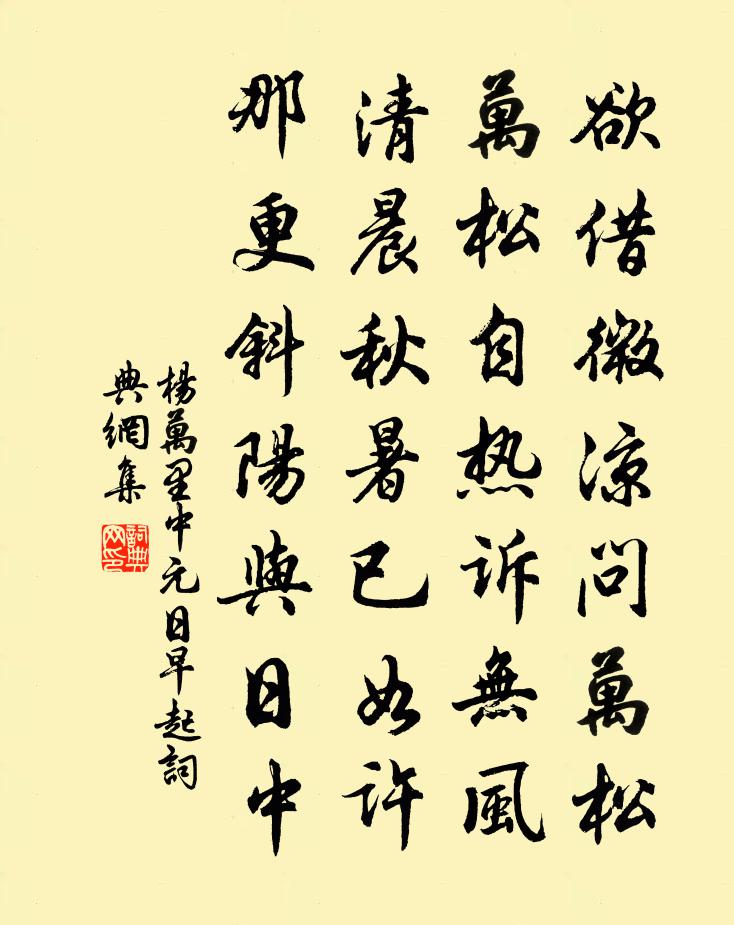 欲借微涼問萬松
萬松自热訴無風
清晨秋暑已如許
那更斜陽與日中
楊萬里中元日早起詞
典網集
詞典網印